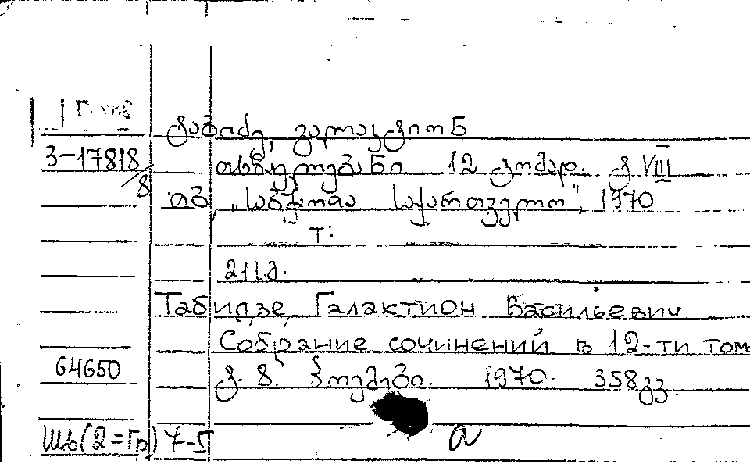 ტაბიძე, გალაკტიონ
3-17818/8 თხზულებანი 12 ტომად. ტ VIII
თბ „საბჭოთა საქართველო", 1970
Т.
211გ.
Табидзе Галактион Васильевич
Собрание сочинений в 12-ти том
64650 ტ. 8. პოემები. 1970. 358გვ
(2=Гр) 7-5 а